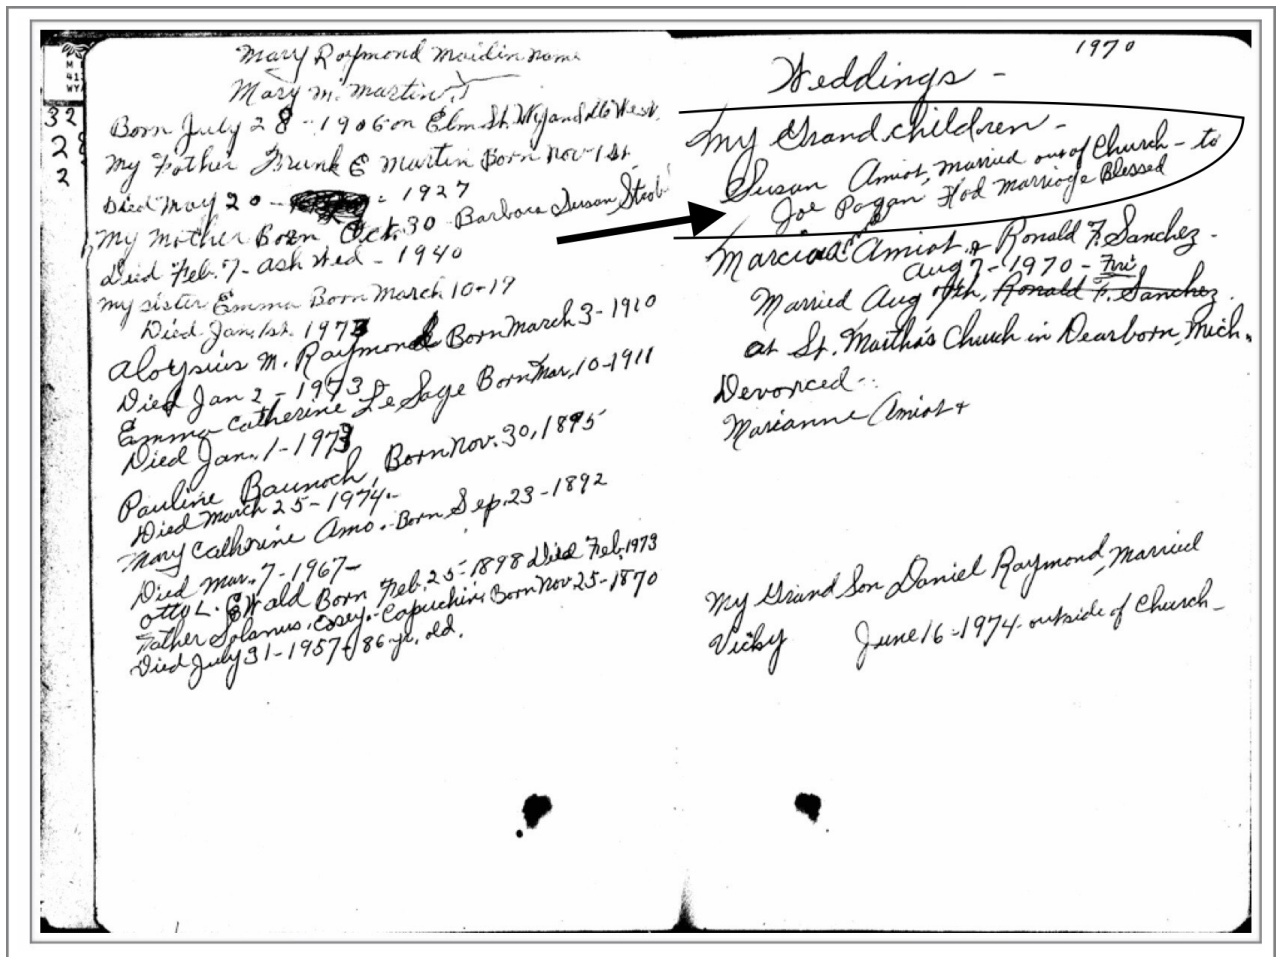 Mary Raymond Maidin name
Mary M. Martin
Born July 28 - 1906 on Elm St. Wyandotte West.
My Father Frank E Martin Born Nov 1st
Died May 20 - 1927
My Mother Born Oct. 30 - Barbara Susan
Died Feb. 7 - Ash Wed - 1940
my sister Emma Born March 10-19
Died Jan. 1st. 1973
Aloysius M. Raymond Born March 3-1910
Died Jan 2 - 1973
Emma Catherine Le Sage Born Mar. 10-1911
Died Jan. 1-1973
Pauline Baunoch, Born Nov. 30, 1895
Died March 25-1974-
Mary Cathrine Amo. Born Sep. 23-1892
Died Mar. 7-1967-
Otto L. Ewald Born Feb. 25-1898 Died Feb. 1973
Father Solanus. Casey. Capuchin. Born Nov 25-1870
Died July 31-1957-86 yr. old.
32
2
2
1970
Weddings -
My Grand children -
Susan Amiot, married out of Church - to
Joe Pagan Had marriage Blessed
Marcia Amiot & Ronald F. Sanchez -
Aug 7-1970 - Fri
Married Aug 7th, Ronald F. Sanchez
at St. Martha's Church in Dearborn, Mich.
Devorced -
Marianne Amiot +
My Grand Son Daniel Raymond, Married
Vicky June 16-1974 - outside of Church -